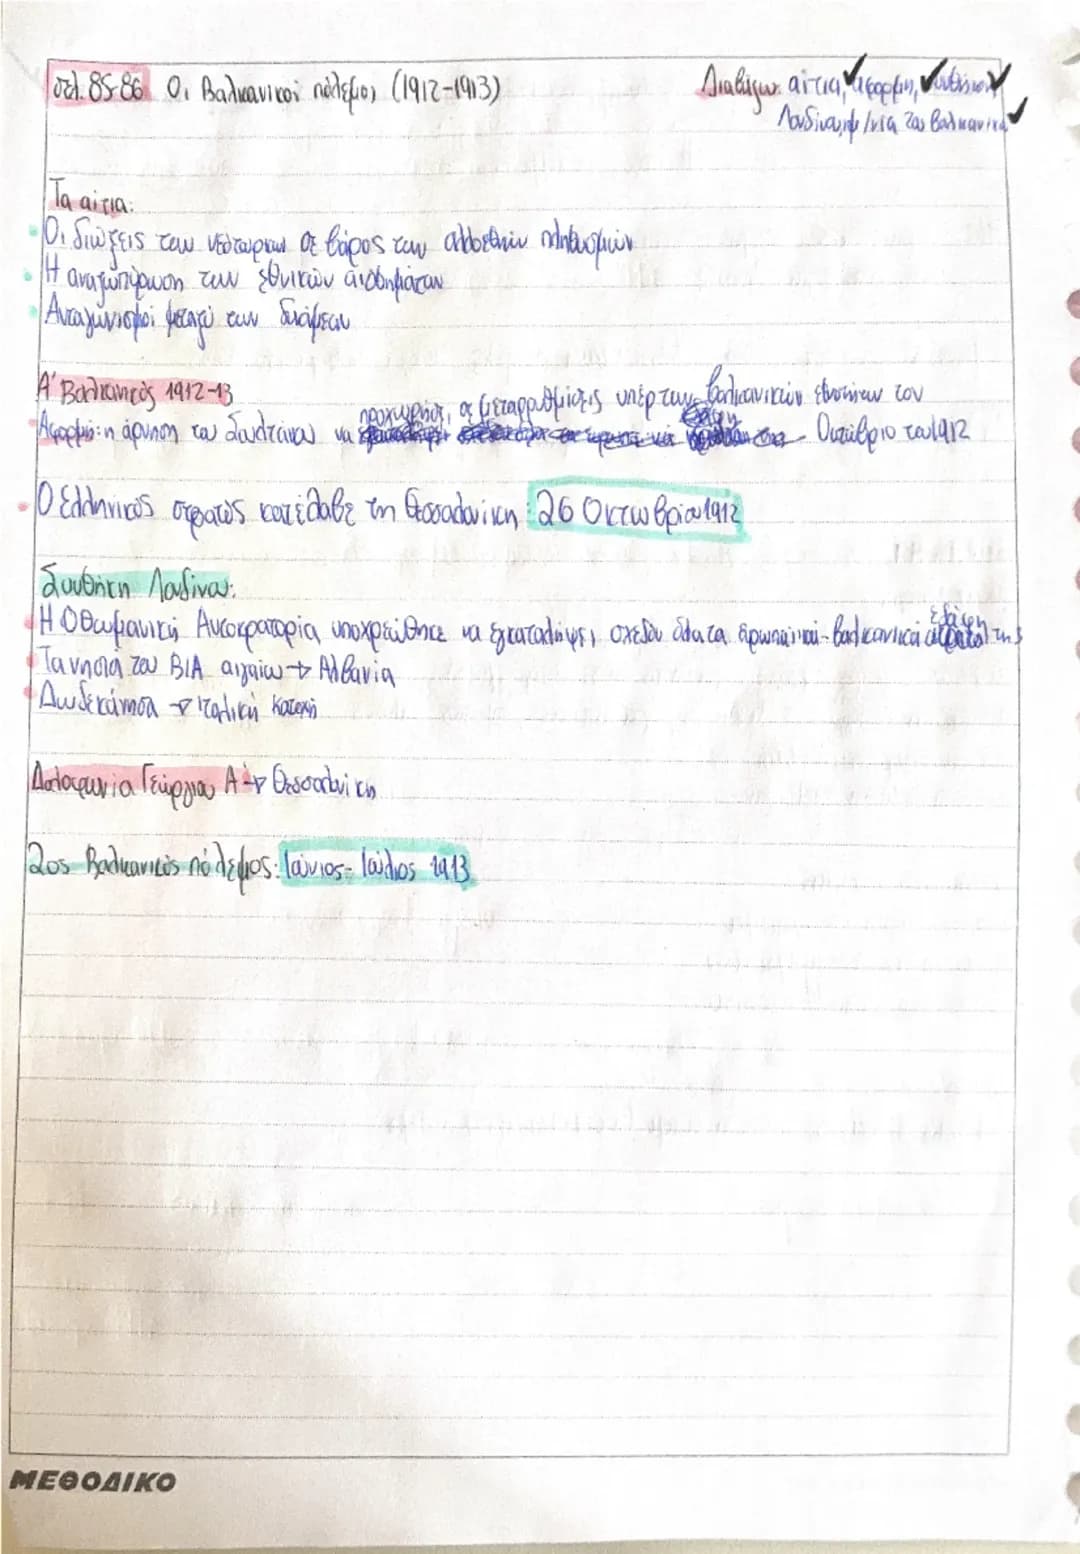 σελ. 85-86 Οι Βαλκανικοί πόλεμοι (1912-1913)
Διαβάζω: αίτια, αφορμή, συνθήκη
Λονδίνου, 2ος Βαλκανικό
Τα αίτια:
Οι διώξεις των νεότουρκων σε βάρος των αλλοεθνών πληθυσμών
Η αναζωπύρωση των εθνικών αισθημάτων
Ανταγωνισμοί μεταξύ των δυνάμεων
Α' Βαλκανικός 1912-13
προχωρήσει σε μεταρρυθμίσεις υπέρ των βαλκανικών εθνοτήτων τον
Αφορμή: η άρνηση του Σουλτάνου να Οκτώβριο του 1912
Ο Ελληνικός στρατός κατέλαβε τη Θεσσαλονίκη: 26 Οκτωβρίου 1912
Συνθήκη Λονδίνου:
Η Οθωμανική Αυτοκρατορία υποχρεώθηκε να εγκαταλείψει σχεδόν όλα τα βαλκανικά εδάφη της
Τα νησιά του ΒΙΑ αιγαίου → Αλβανία
Δωδεκάνησα → Ιταλική κατοχή
Δολοφονία Γεώργιου Α' → Θεσσαλονίκη
2ος Βαλκανικός πόλεμος: Ιούνιος- Ιούλιος 1913
ΜΕΘΟΔΙΚΟ